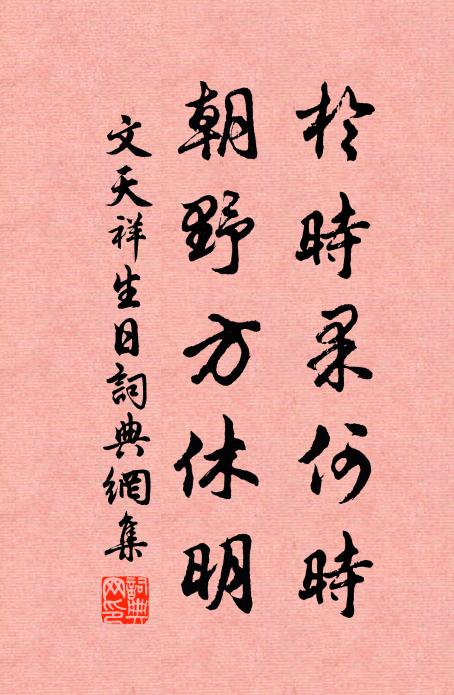 於時果何時
朝野方休明
文天祥生日詞典網集
詞典網印